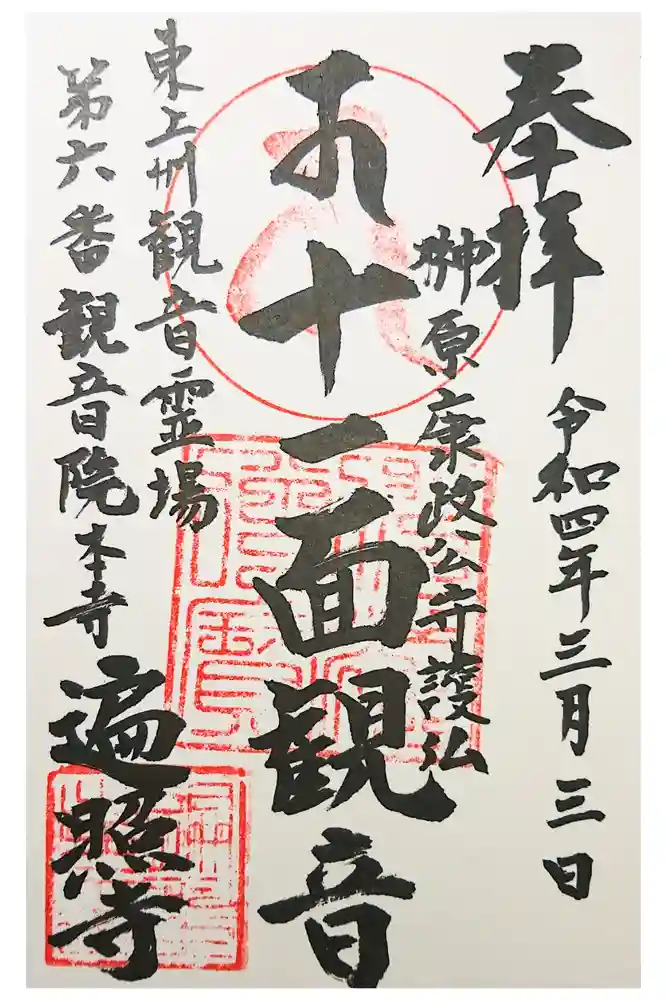 奉拝
令和四年三月三日
榊原康政公守護仏
十一面観音
東上州観音霊場
第六番観音院本寺 遍照寺